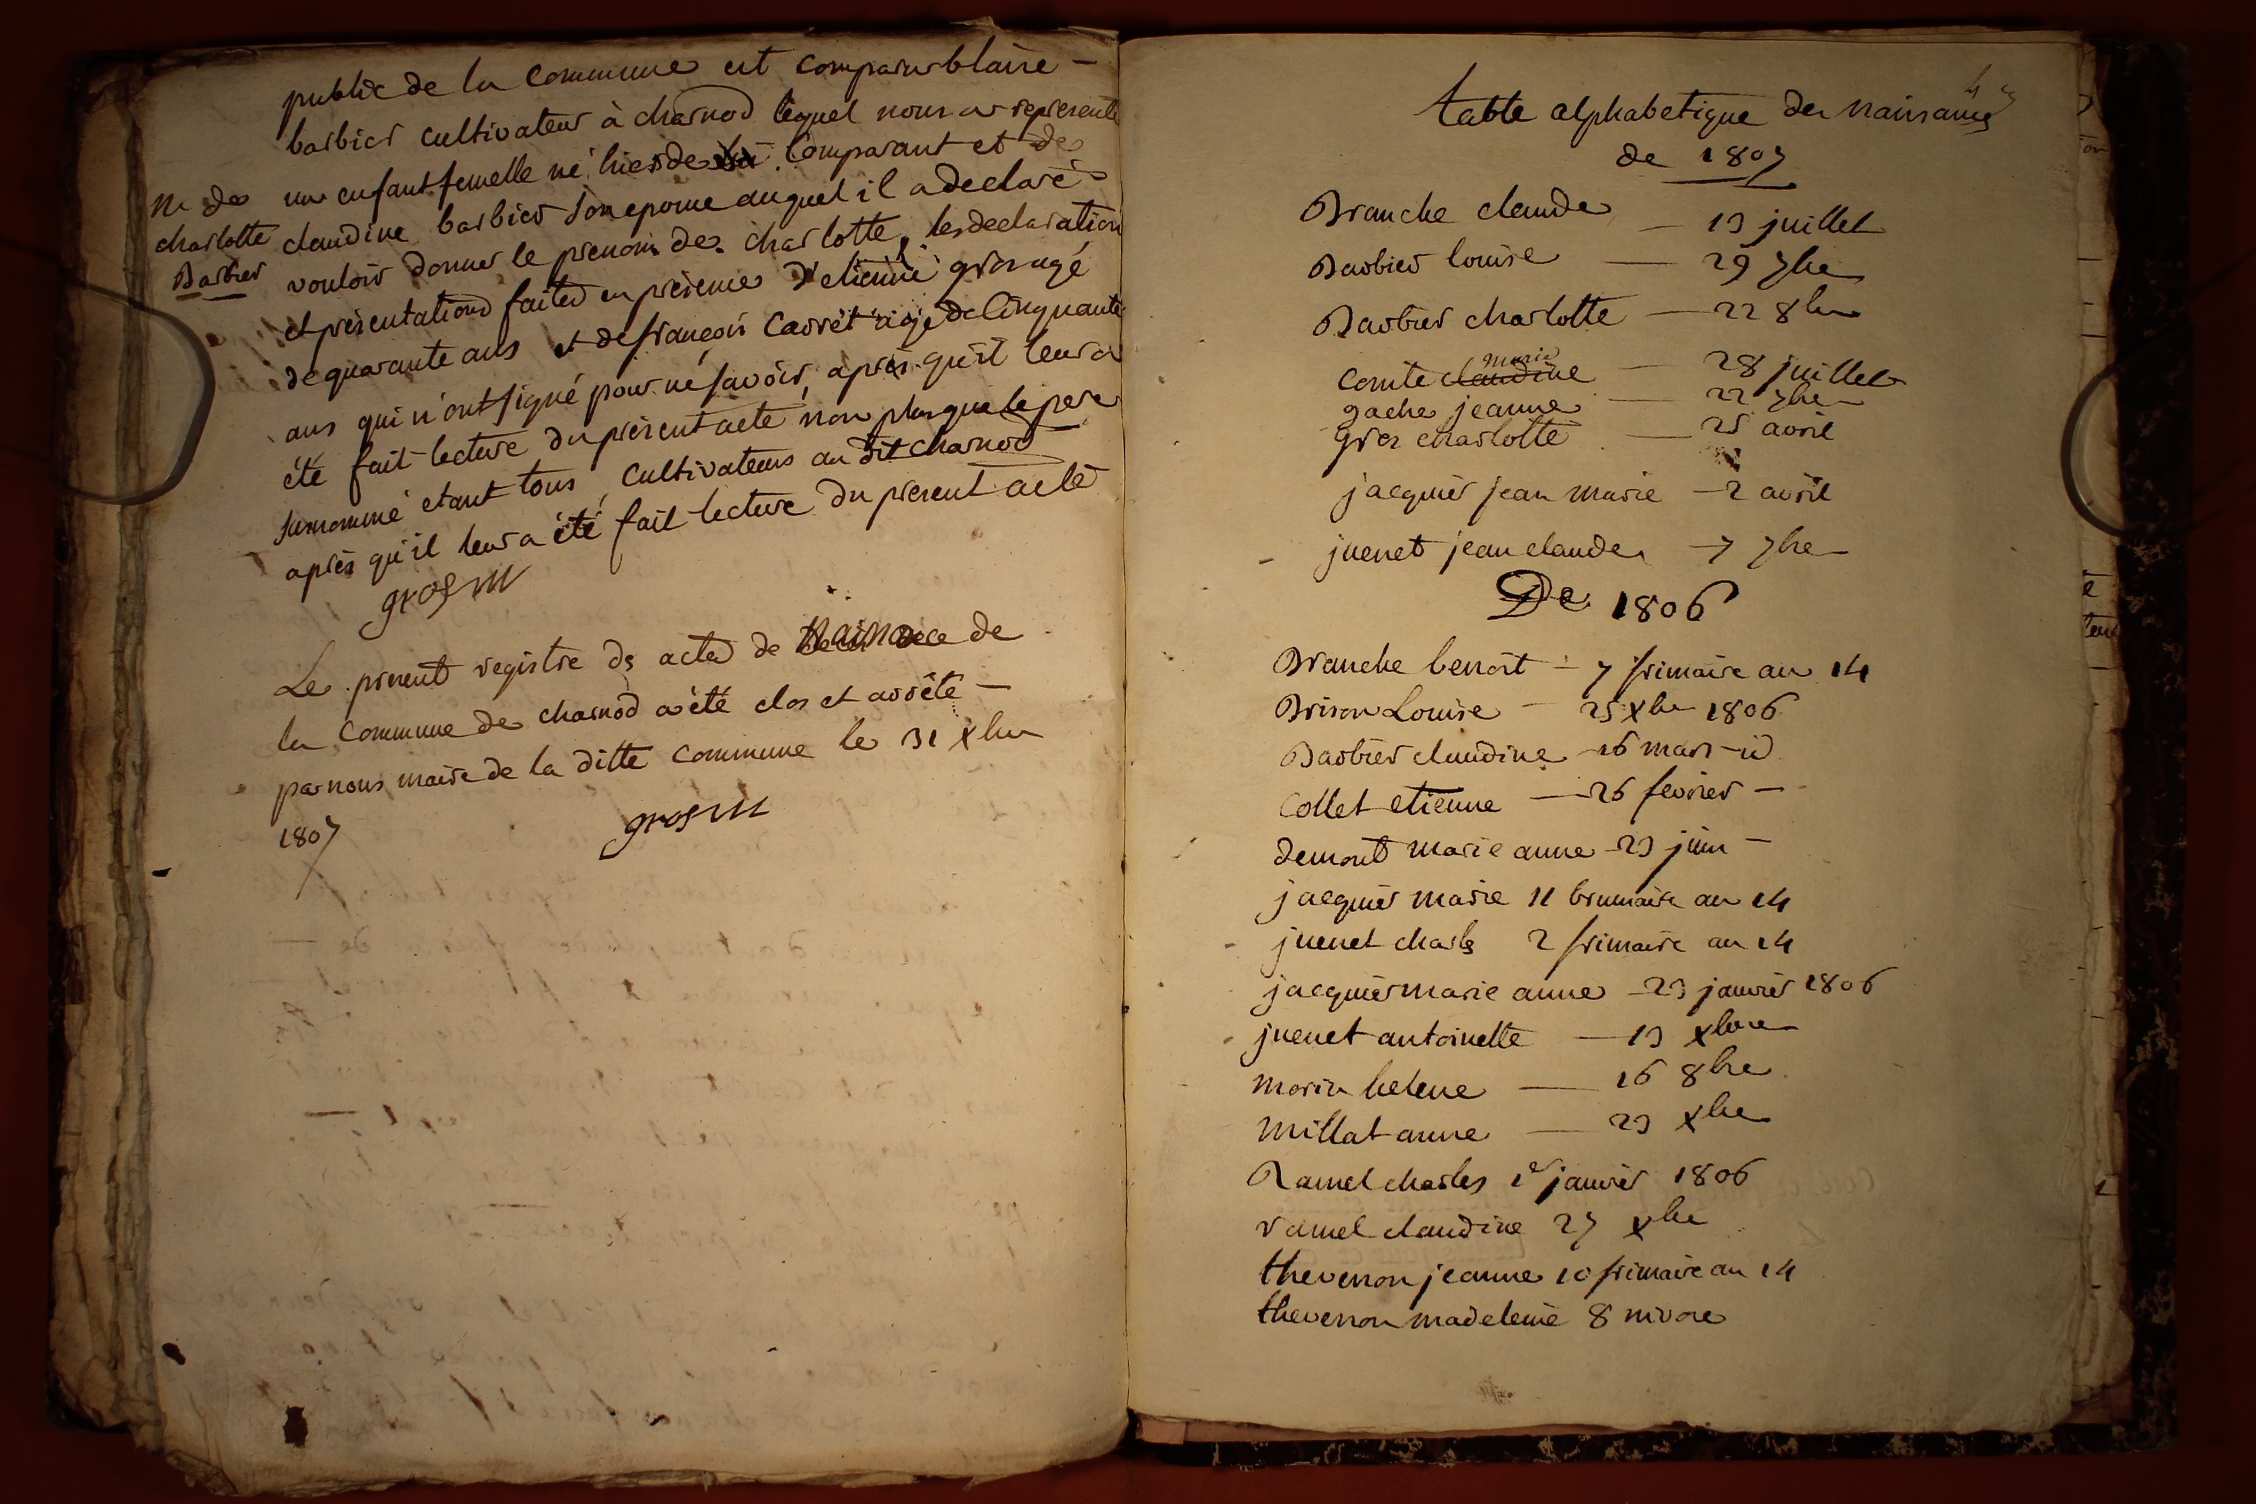 public de la commune est comparu blaise
barbier cultivateur à charnod lequel nous a representé
un enfant femelle né hier de lui Comparant et de
claudine barbier son epouse auquel il a declaré
vouloir donner le prenom de charlotte, les declaration
et présentations faites en présence d'etienne gros agé
de quarante ans et de françois Carrét agé de Cinquante
ans qui n'ont signé pour ne savoir, après qu'il leur a
été fait lecture du présent acte non plus que le pere
surnommé etant tous cultivateurs au dit charnod
après qu'il leur a été fait lecture du present acte
gros m
N de
charlotte
Barbier
Le present registre ds actes de Naissance de
la Commune de charnod a été clos et arrêté
par nous maire de la ditte commune le 31 xbre
1807
gros m
table alphabetique des naissances
de 1807
Branche claude — 13 juillet
Barbier louise — 29 7bre
Barbier charlotte — 22 8bre
marie
comte claudine — 28 juillet
gache jeanne — 22 7bre
gros charlotte — 25 avril
jacquier jean marie — 2 avril
juenet jean claude — 7 7bre
De 1806
Branche benoit — 7 frimaire an 14
Brison Louise — 25 xbre 1806
Barbier claudine — 16 mars — id
Collet etienne — 26 fevrier —
demont marie anne — 23 juin —
jacquier marie 11 brumaire an 14
juenet charls 2 frimaire an 14
jacquier marie anne — 23 janvier 1806
juenet antoinette — 13 xbre
morin helene — 16 8bre
millat anne — 23 xbre
Ramel charles 1er janvier 1806
ramel claudine 27 xbre
thevenon jeanne 10 frimaire an 14
thevenon madeleine 8 nivose